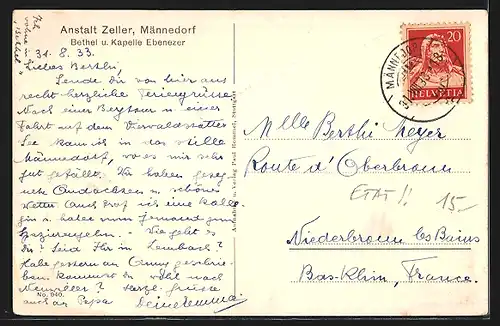 Ich
wohne in
"Bethel"
Anstalt Zeller, Männedorf
Bethel u. Kapelle Ebenezer
31. 8. 33.
Liebes Berthli,
Sende Dir von hier aus
recht herzliche Feriengrüsse.
Nach einer Bergtour u. einer
Fahrt auf dem Vierwaldstätter
See kam ich in das stille
Männedorf, wo es mir sehr
gut gefällt. Wir haben
Andachten u. schönes
Wetter. Auch traf ich eine Kolle-
gin u. habe nun Jemand zum
Spazierengehn. - Wie geht es
Dir? Seid Ihr in Lembach?
Habe gestern an Anny geschrie-
ben. Kommst Du wohl nach
? Herzl. Grüsse
auch an Papa Deine Emma
No. 940.
Aufnahme u. Verlag Paul Hommel, Stuttgart
MÄNNEDORF
20
HELVETIA
Mlle Berthi Meyer
Route d'Oberbronn
ETAT!!
15—
Niederbronn les Bains
Bas-Rhin, France.